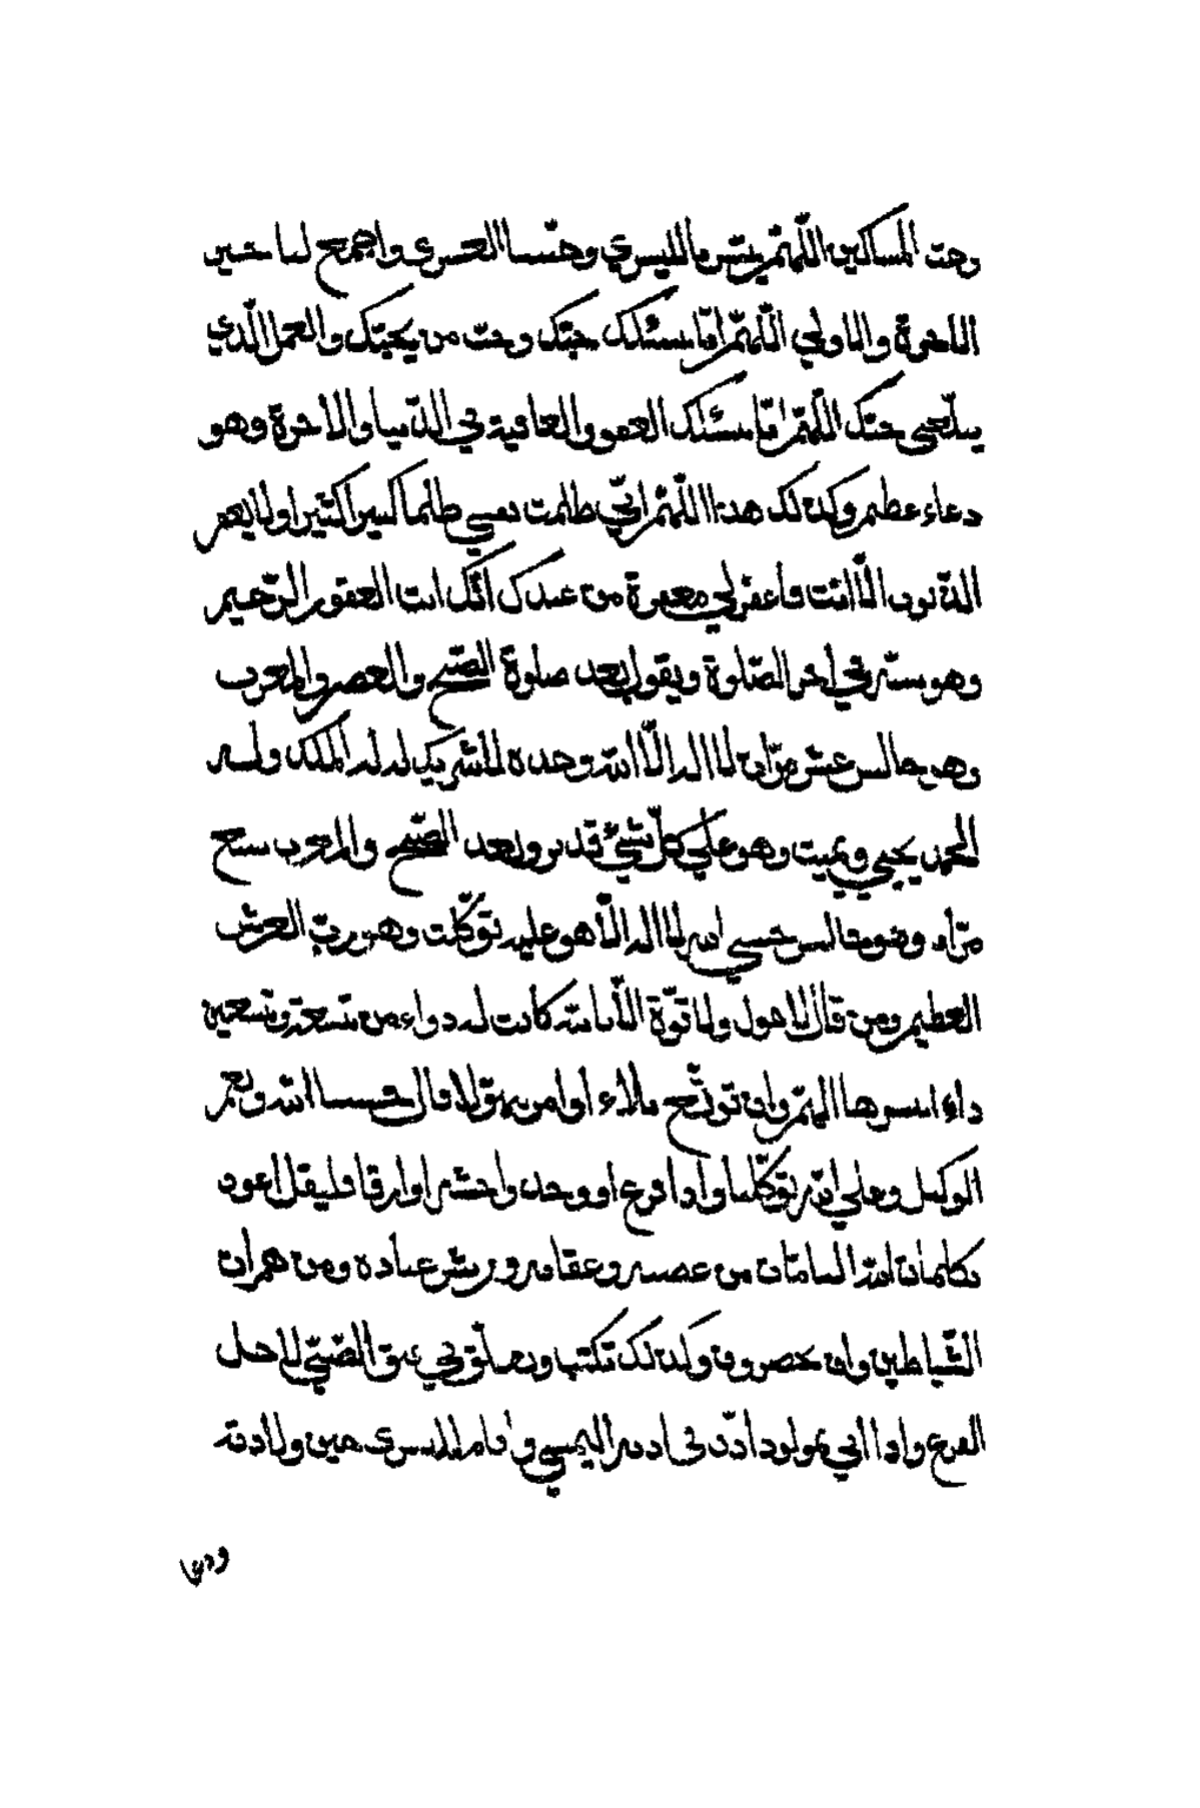 وحبّ المساكين اللّهمّ يسّرنا لليسرى وجنّبنا العسرى واجمع لنا خير
الاخرة والاولي اللّهمّ انّا نسئلك حبّك وحبّ من يحبّك والعمل الّذي
يبلّغني حبّك اللّهمّ انّا نسئلك العفو والعافية في الدّنيا والاخرة وهو
دعاء عظيم وكذلك هذا اللّهمّ انّي ظلمت نفسي ظلما كبيرا كثيرا ولا يغفر
الذّنوب الّا انت فاغفر لي مغفرة من عندك انّك انت الغفور الرّحيم
وهو سنّة في اخر الصّلوة ويقول بعد صلوة الصّبح والعصر والمغرب
وهو جالس عشر مرّات لا اله الّا الله وحده لا شريك له له الملك وله
الحمد يحيي ويميت وهو علي كلّ شيئ قدير وبعد الصّبح والمغرب سبع
مرّات وهو جالس حسبي الله لا اله الّا هو عليه توكّلت وهو ربّ العرش
العظيم ومن قال لا حول ولا قوّة الّا بالله كانت له دواء من تسعة وتسعين
داء ايسرها الهمّ وان توقّع بلاء او امر مهول قال حسبنا الله ونعم
الوكيل وعلي الله توكّلنا واذا فزع او وجد وحشة او ارقا فليقل اعوذ
بكلمات الله التامّات من غضبه وعقابه وشرّ عباده ومن همزات
الشّياطين وان يحضرون وكذلك تكتب وتعلّق في عنق الصّبيّ لاجل
الفزع واذا اتي بمولود اذّن في اذنه اليمني واقام لليسرى حين ولادته